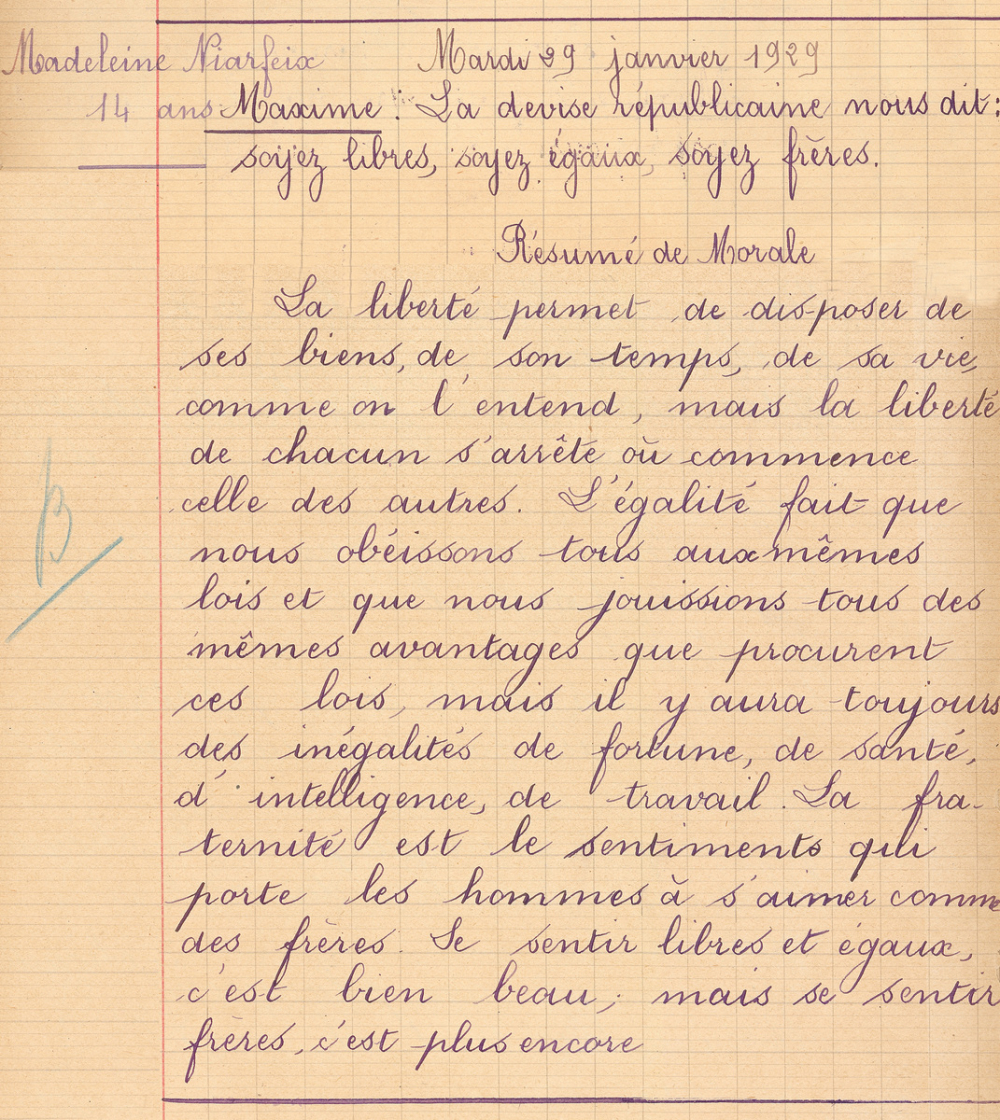 Madeleine Niarfeix Mardi 29 janvier 1929
14 ans Maxime : La devise républicaine nous dit :
soyez libres, soyez égaux, soyez frères.
Résumé de Morale
La liberté permet de disposer de
ses biens, de son temps, de sa vie,
comme on l'entend, mais la liberté
de chacun s'arrête où commence
celle des autres. L'égalité fait que
nous obéissons tous aux mêmes
lois et que nous jouissions tous des
mêmes avantages que procurent
ces lois, mais il y aura toujours
des inégalités de fortune, de santé,
d'intelligence, de travail. La fra-
ternité est le sentiments qui
porte les hommes à s'aimer comm
des frères. Se sentir libres et égaux,
c'est bien beau; mais se sentir
frères, c'est plus encore
B